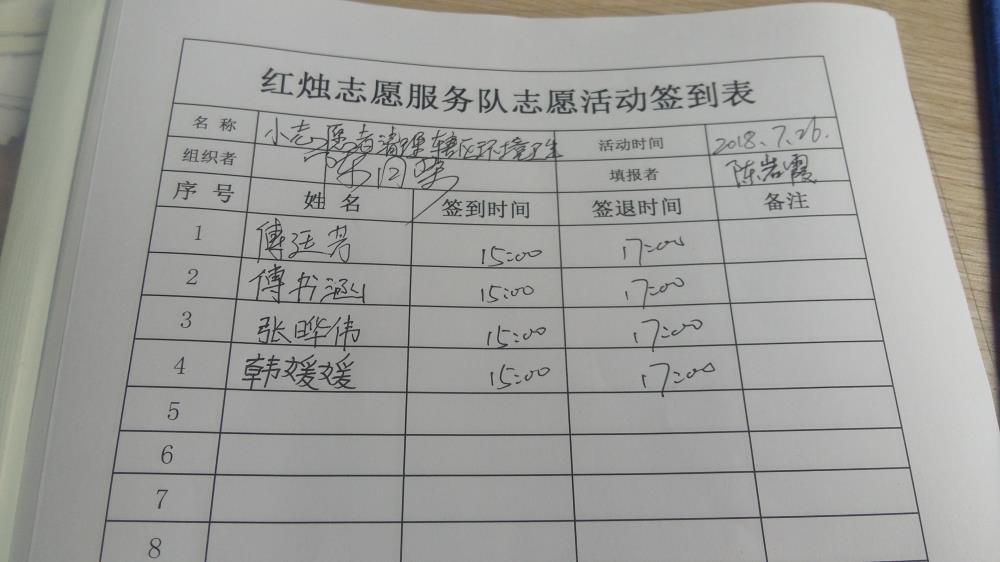 红烛志愿服务队志愿活动签到表
名 称 小志愿者清理辖区环境卫生 活动时间 2018.7.26.
组织者 填报者 陈岩霞
序 号 姓 名 签到时间 签退时间 备注
1 傅廷芳 15:00 17:00
2 傅书涵 15:00 17:00
3 张晔伟 15:00 17:00
4 韩媛媛 15:00 17:00
5
6
7
8